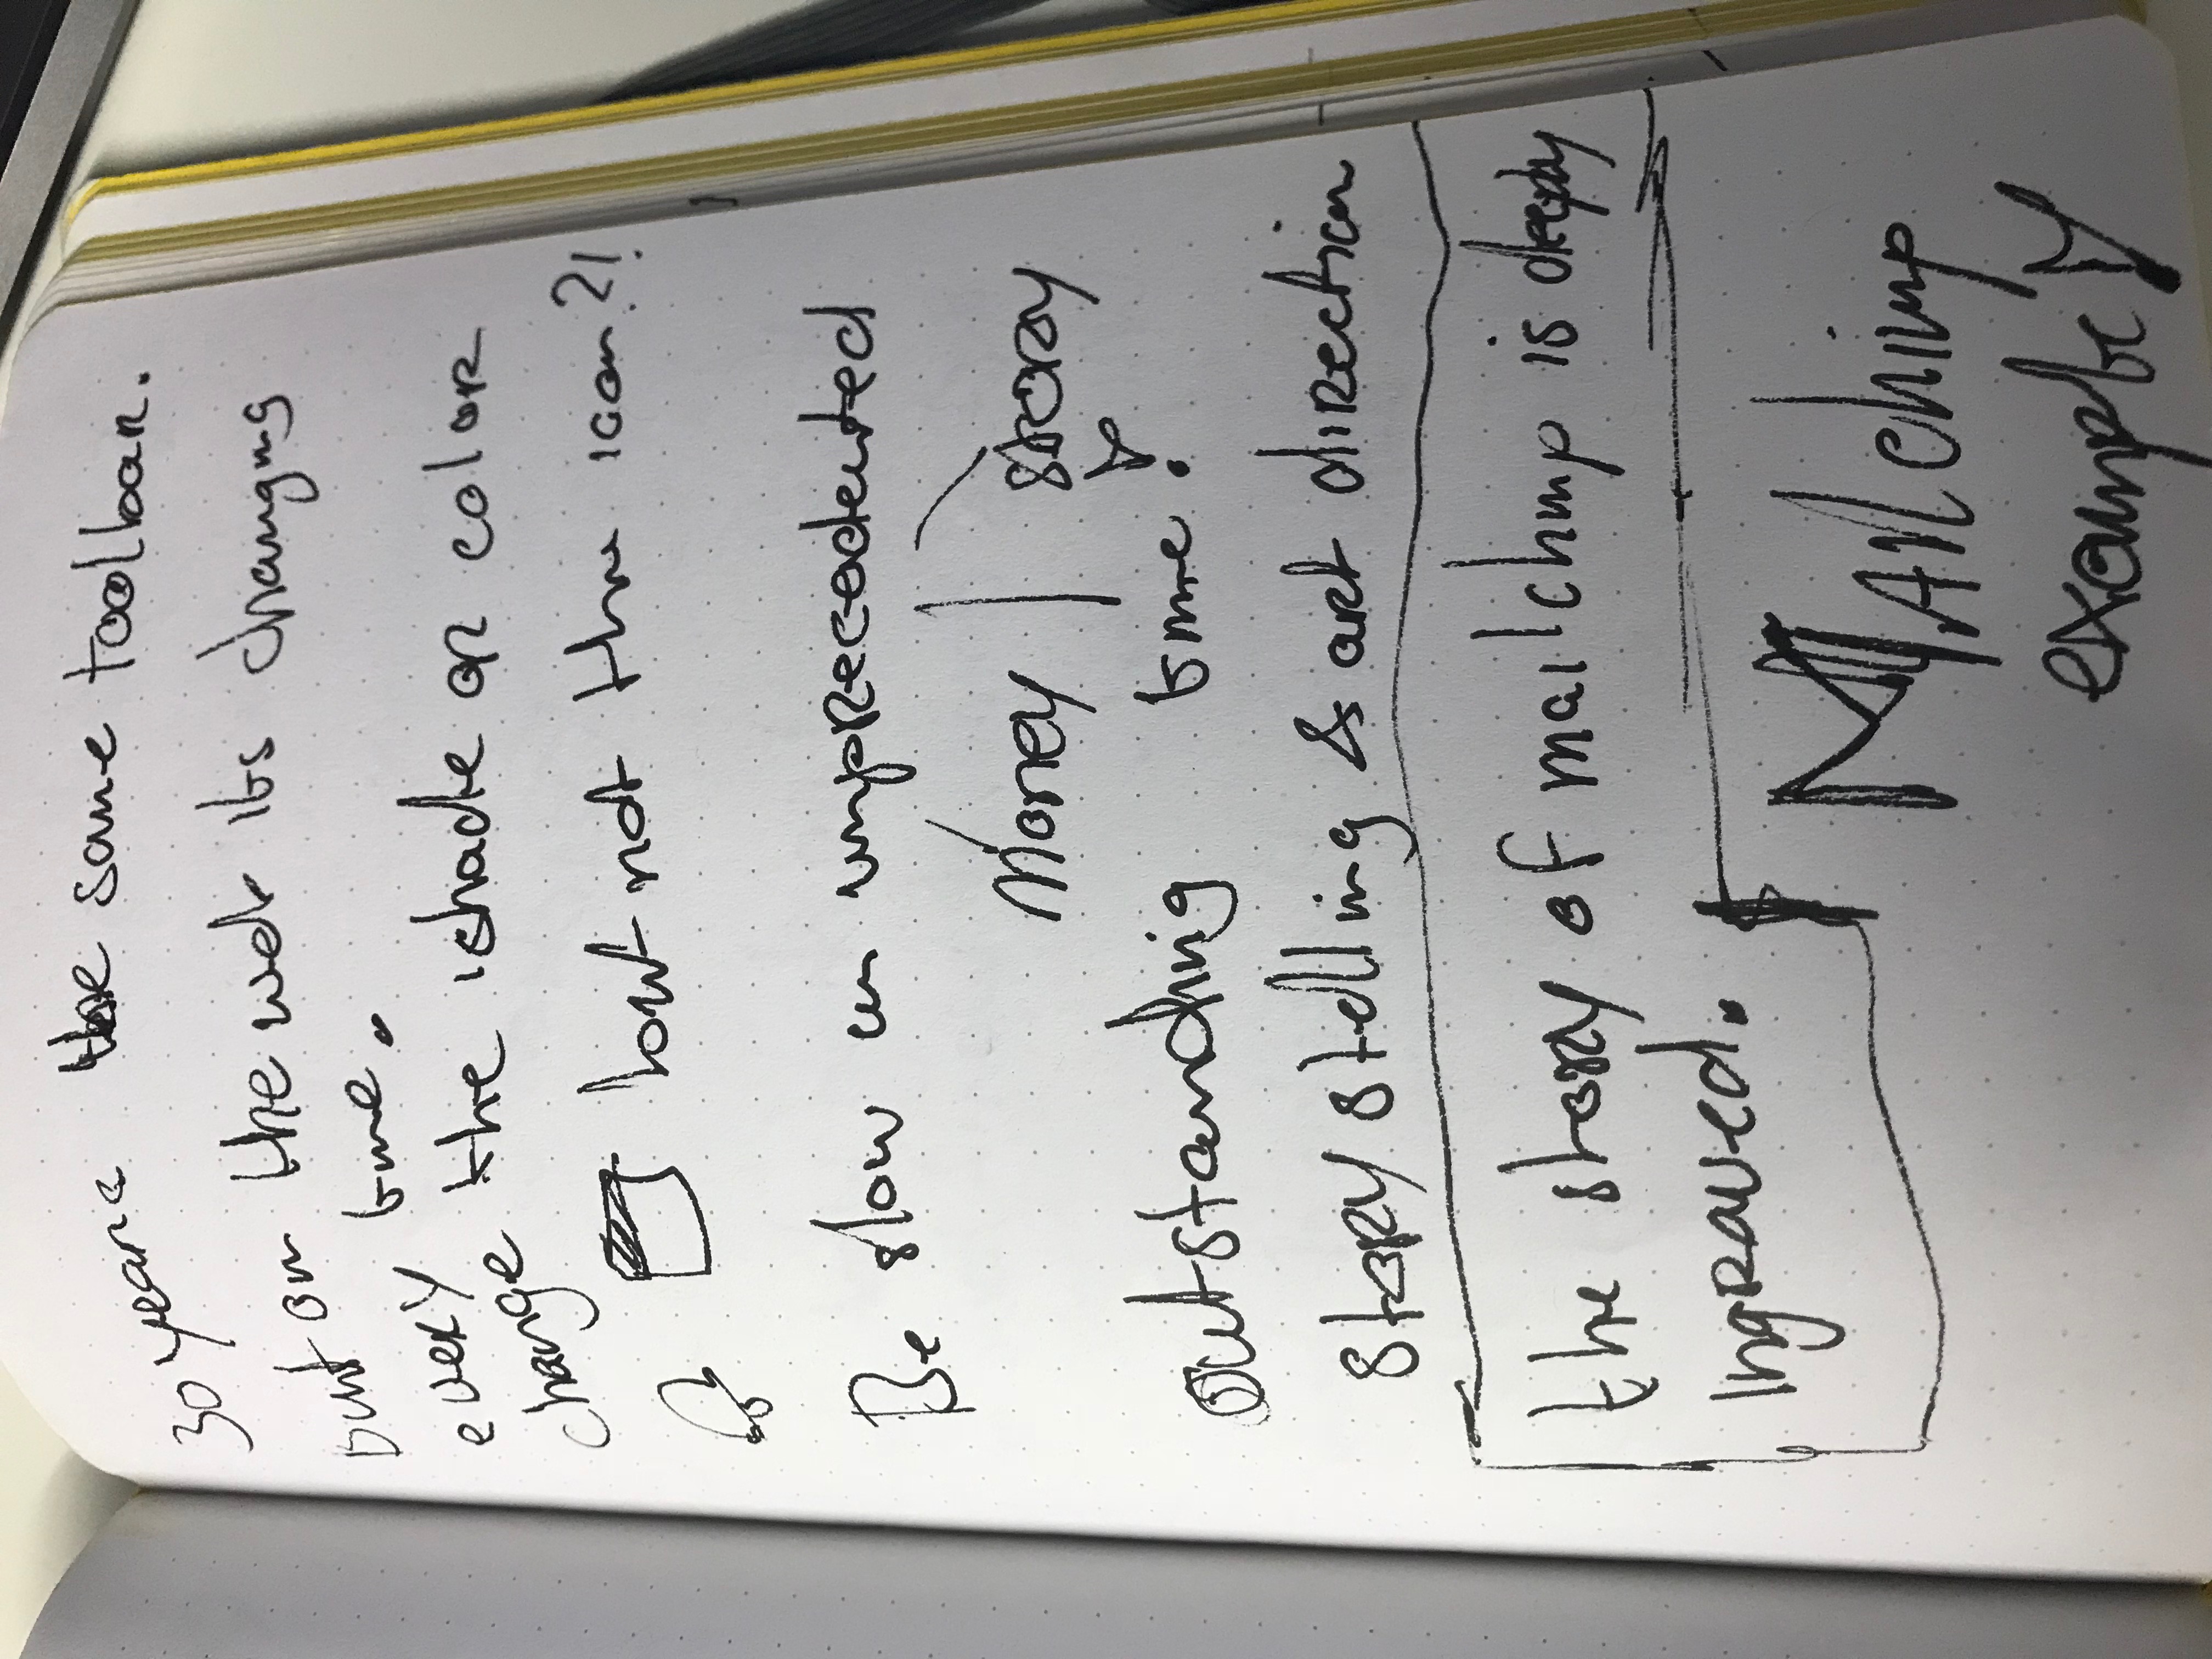 30 years the same toolbar.
But on the web its changing
every time.
change the shade or color
but not the icon?!
Be slow in unprecedented
Money | story
outstanding time!
story stelling & art direction
the story of mailchimp is deeply
ingraved.
MAilchimp
example!